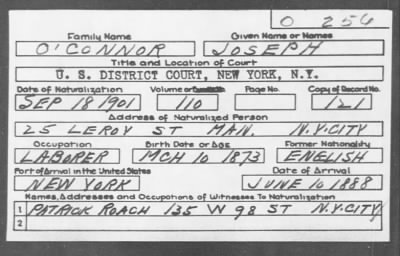 O 256
Family Name Given Name or Names
O'CONNOR JOSEPH
Title and Location of Court
U. S. DISTRICT COURT, NEW YORK, N.Y.
Date of Naturalization Volume or Page No. Copy of Record No.
SEP 18 1901 110 121
Address of Naturalized Person
25 LEROY ST MAN. N.Y.CITY
Occupation Birth Date or Age Former Nationality
LABORER MCH 10 1873 ENGLISH
Port of Arrival in the United States Date of Arrival
NEW YORK JUNE 10 1888
Names, Addresses and Occupations of Witnesses To Naturalization
1 PATRICK ROACH 135 W 98 ST N.Y.CITY
2